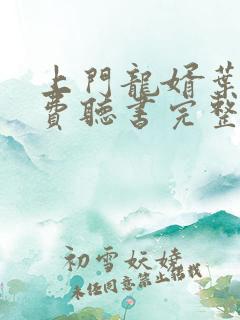 上門龍婿葉
費聽書完整
初雪妖嬈
未经同意禁止搭我